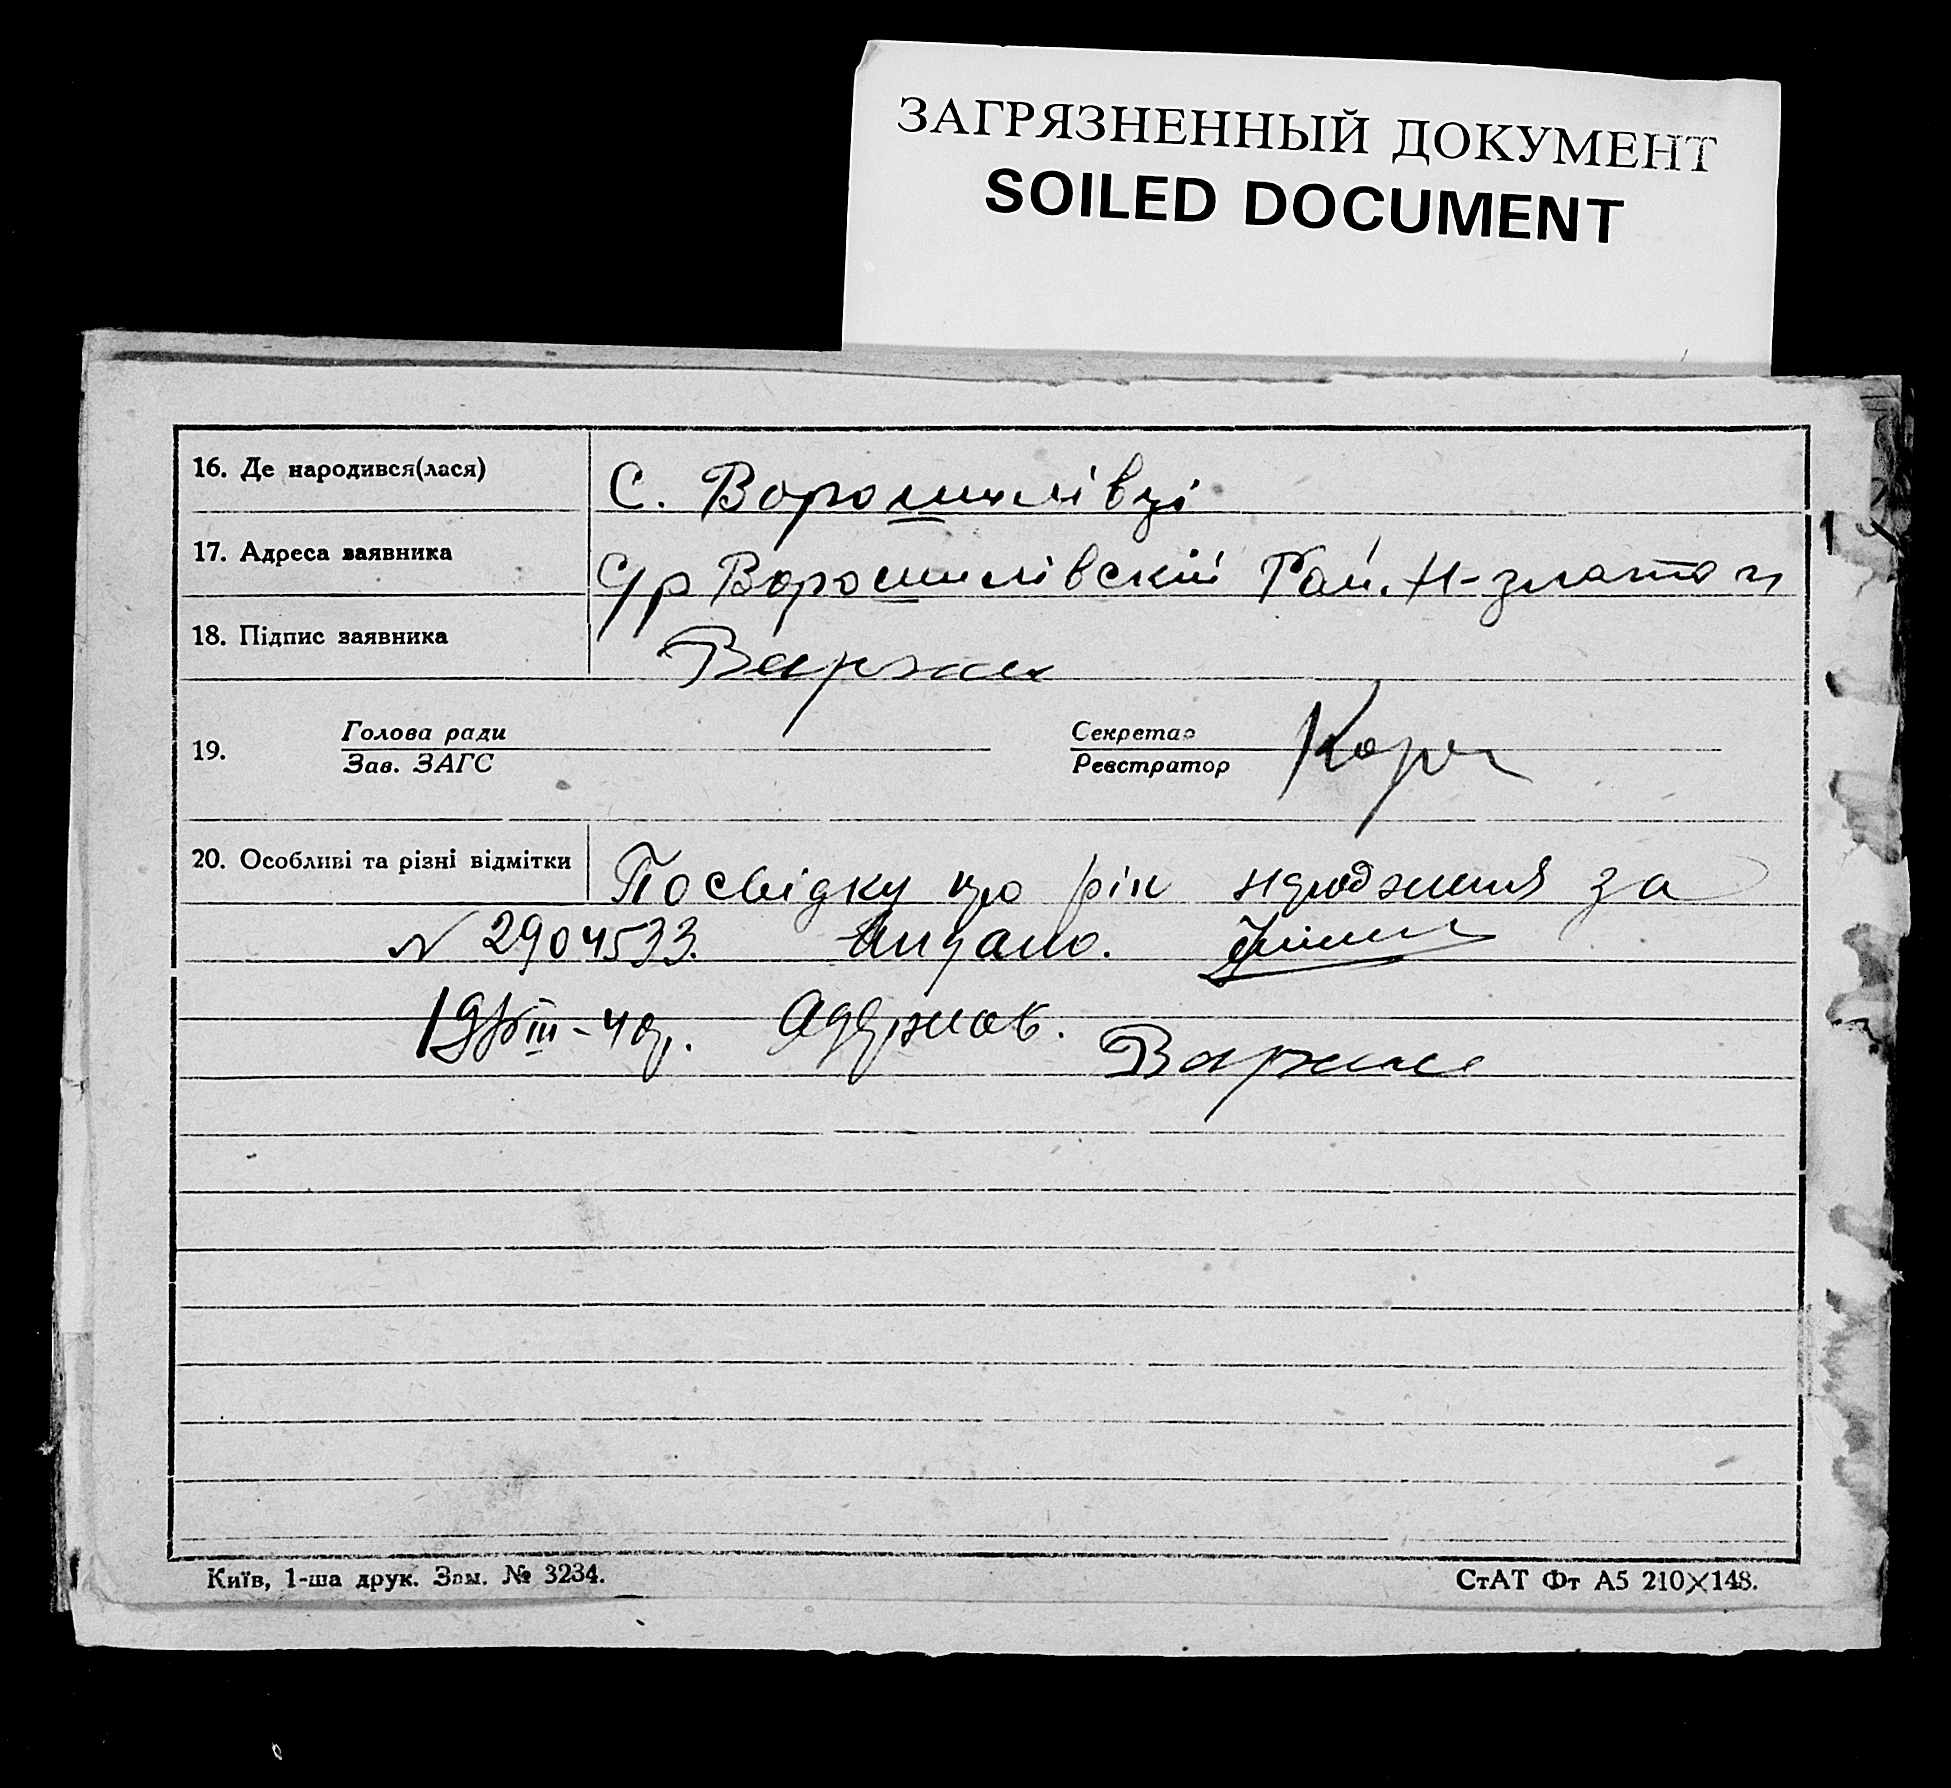 ЗАГРЯЗНЕННЫЙ ДОКУМЕНТ
SOILED DOCUMENT
16. Де народився(лася) С. Ворошилівці
17. Адреса заявника С/р Ворошилівскій Рай. Н-злато
18. Підпис заявника
19. Голова ради Секретар
Зав. ЗАГС Реєстратор
20. Особливі та різні відмітки Посвідку про рік народження за
N 2904533. видано.
Одержав.
Київ, 1-ша друк. Зам. № 3234. СтАТ Фт А5 210×148.